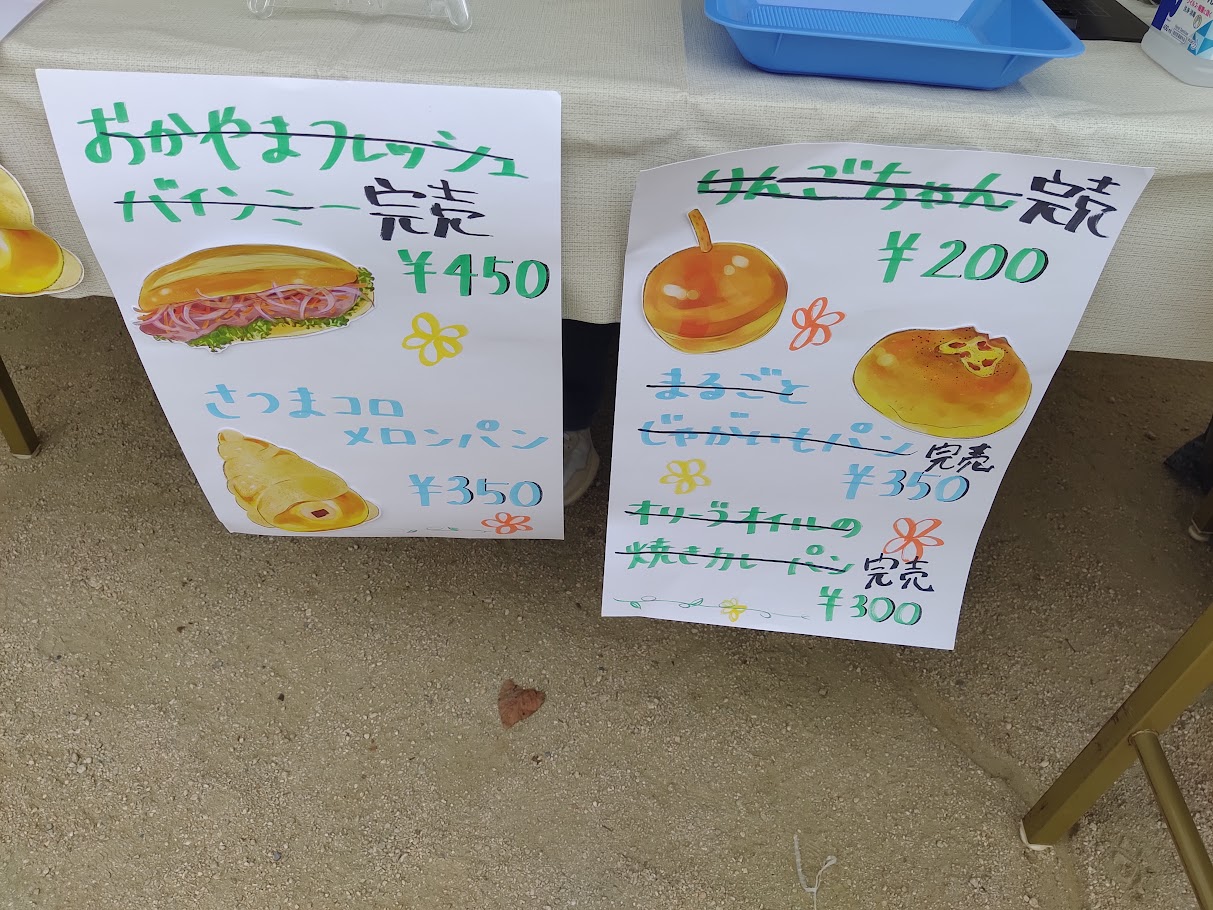 おかやまフレッシュ
バインミー 完売
¥450
さつまコロ
メロンパン
¥350
りんごちゃん 完売
¥200
まるごと
じゃがいもパン 完売
¥350
オリーブオイルの
焼きカレーパン 完売
¥300